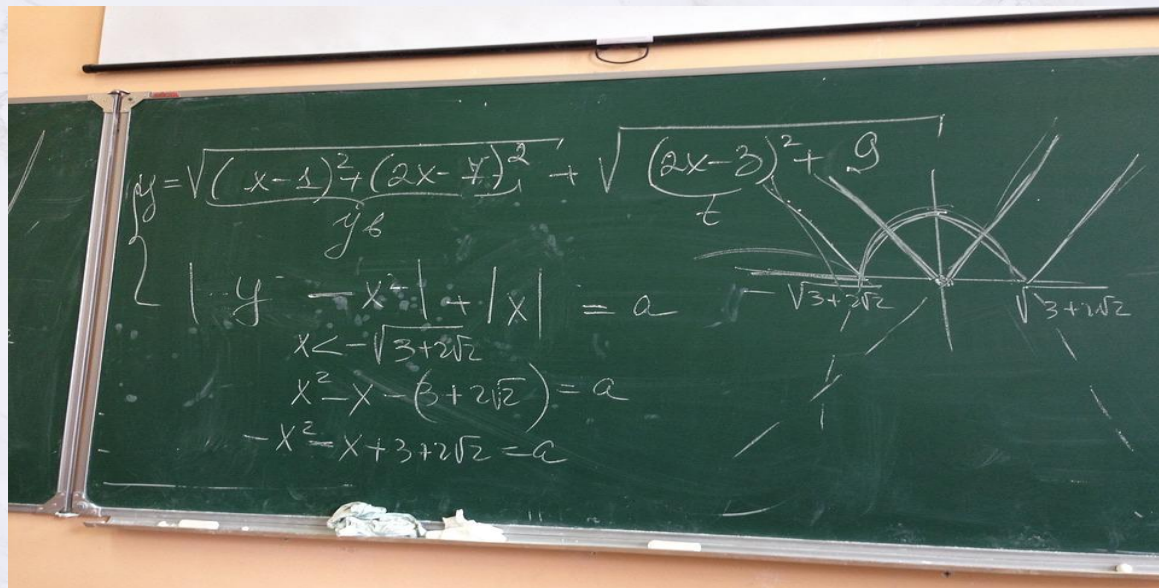 y = √((x-1)²+(2x-7)²) + √((2x-3)²+9)
t
|y - x²| + |x| = a
x<-√(3+2√2)
x²-x-(3+2√2)=a
-x²-x+3+2√2=a
-√(3+2√2)
√(3+2√2)